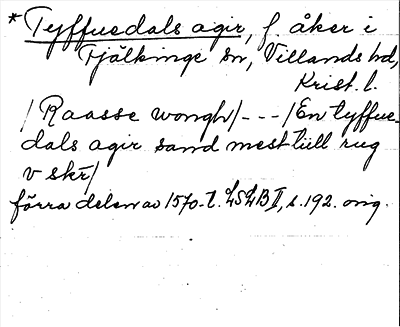 * Tyffuedals agir, f. åker i
Fjälkinge sn, Villands hd,
Krist. l.
/Raasse wongh/---/En tyffue-
dals agir sand mest tiill rug
v skr/
förra delen av 1570-t. LSLB II, s. 192. orig.